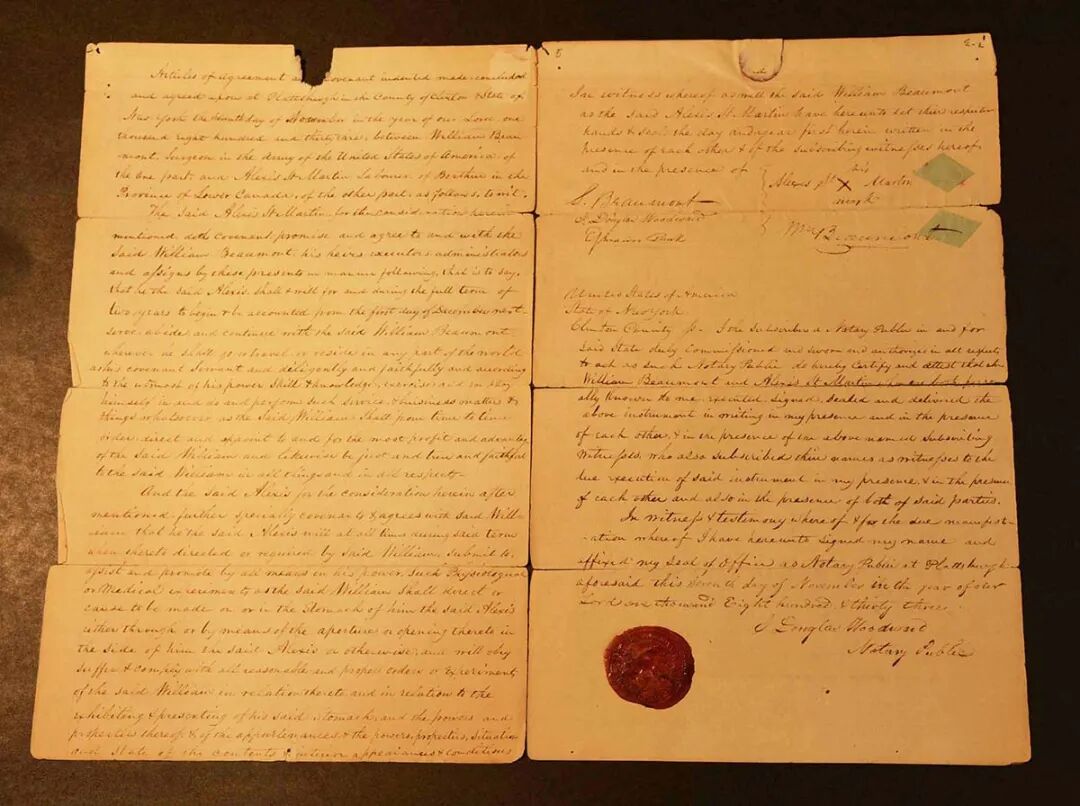 Articles of agreement and covenant indented made concluded
and agreed upon at Plattsburgh in the County of Clinton & State of
New York the seventh day of November in the year of our Lord one
thousand eight hundred and thirty three, between William Beau
mont, Surgeon in the army of the United States of America, of
the one part, and Alexis St Martin Labourer of Berthier in the
Province of Lower Canada, of the other part, as follows, to wit.
The Said Alexis St Martin for the consideration herein
mentioned doth covenant, promise and agree to and with the
Said William Beaumont, his heirs executors administrators
and assigns by these presents in manner following, that is to say,
that he the said Alexis shall & will for and during the full term of
two years to begin & be accounted from the first day of December next
serve abide and continue with the said William Beaumont
wherever he shall go or travel or reside in any part of the world
as his covenant Servant and diligently and faithfully and according
to the utmost of his power Skill & knowledge, exercise and employ
himself in and do and perform such service & business matter &
things whatsoever as the Said William Shall from time to time
order direct and appoint to and for the most profit and advantage
of the Said William and likewise be just and true and faithful
to the said William in all things and in all respects.
And the said Alexis for the consideration herein after
mentioned further specially covenants & agrees with said Will-
iam that he the said Alexis will at all times during said term
when thereto directed or required by said William, submit to,
assist and promote by all means in his power, such Physiological
or Medical experiments as the said William shall direct or
cause to be made on or in the Stomach of him the said Alexis
either through or by means of the aperture or opening thereto in
the side of him the said Alexis or otherwise, and will obey
suffer & comply with all reasonable and proper orders or experiments
of the said William in relation thereto and in relation to the
exhibiting & presenting of his said stomach and the powers and
properties thereof & of the appurtenances & the powers, properties, situation
and State of the contents & interior appearances & conditions
5
In witness whereof as well the said William Beaumont
as the said Alexis St. Martin have hereunto set their respective
hands & seals the day and year first herein written in the
presence of each other & of the subscribing witnesses hereof
and in the presence of
his
Alexis St X Martin
mark
S. Beaumont
J Douglas Woodward
Wm Beaumont
United States of America
State of New York
Clinton County ss. I the Subscriber a Notary Public in and for
said State duly commissioned and sworn and authorized in all respects
to act as such Notary Public do hereby Certify and attest that
William Beaumont and Alexis St Martin who are both person
ally known to me executed, signed, sealed and delivered the
above instrument in writing in my presence and in the presence
of each other, & in the presence of the above named subscribing
witnesses, who also subscribed their names as witnesses to the
due execution of said instrument in my presence & in the presence
of each other and also in the presence of both of said parties.
In witness & testimony whereof & for the due manifest-
ation whereof I have hereunto signed my name and
affixed my Seal of Office as Notary Public at Plattsburgh
aforesaid this Seventh day of November in the year of our
Lord one thousand Eight hundred & thirty three.
J Douglas Woodward
Notary Public